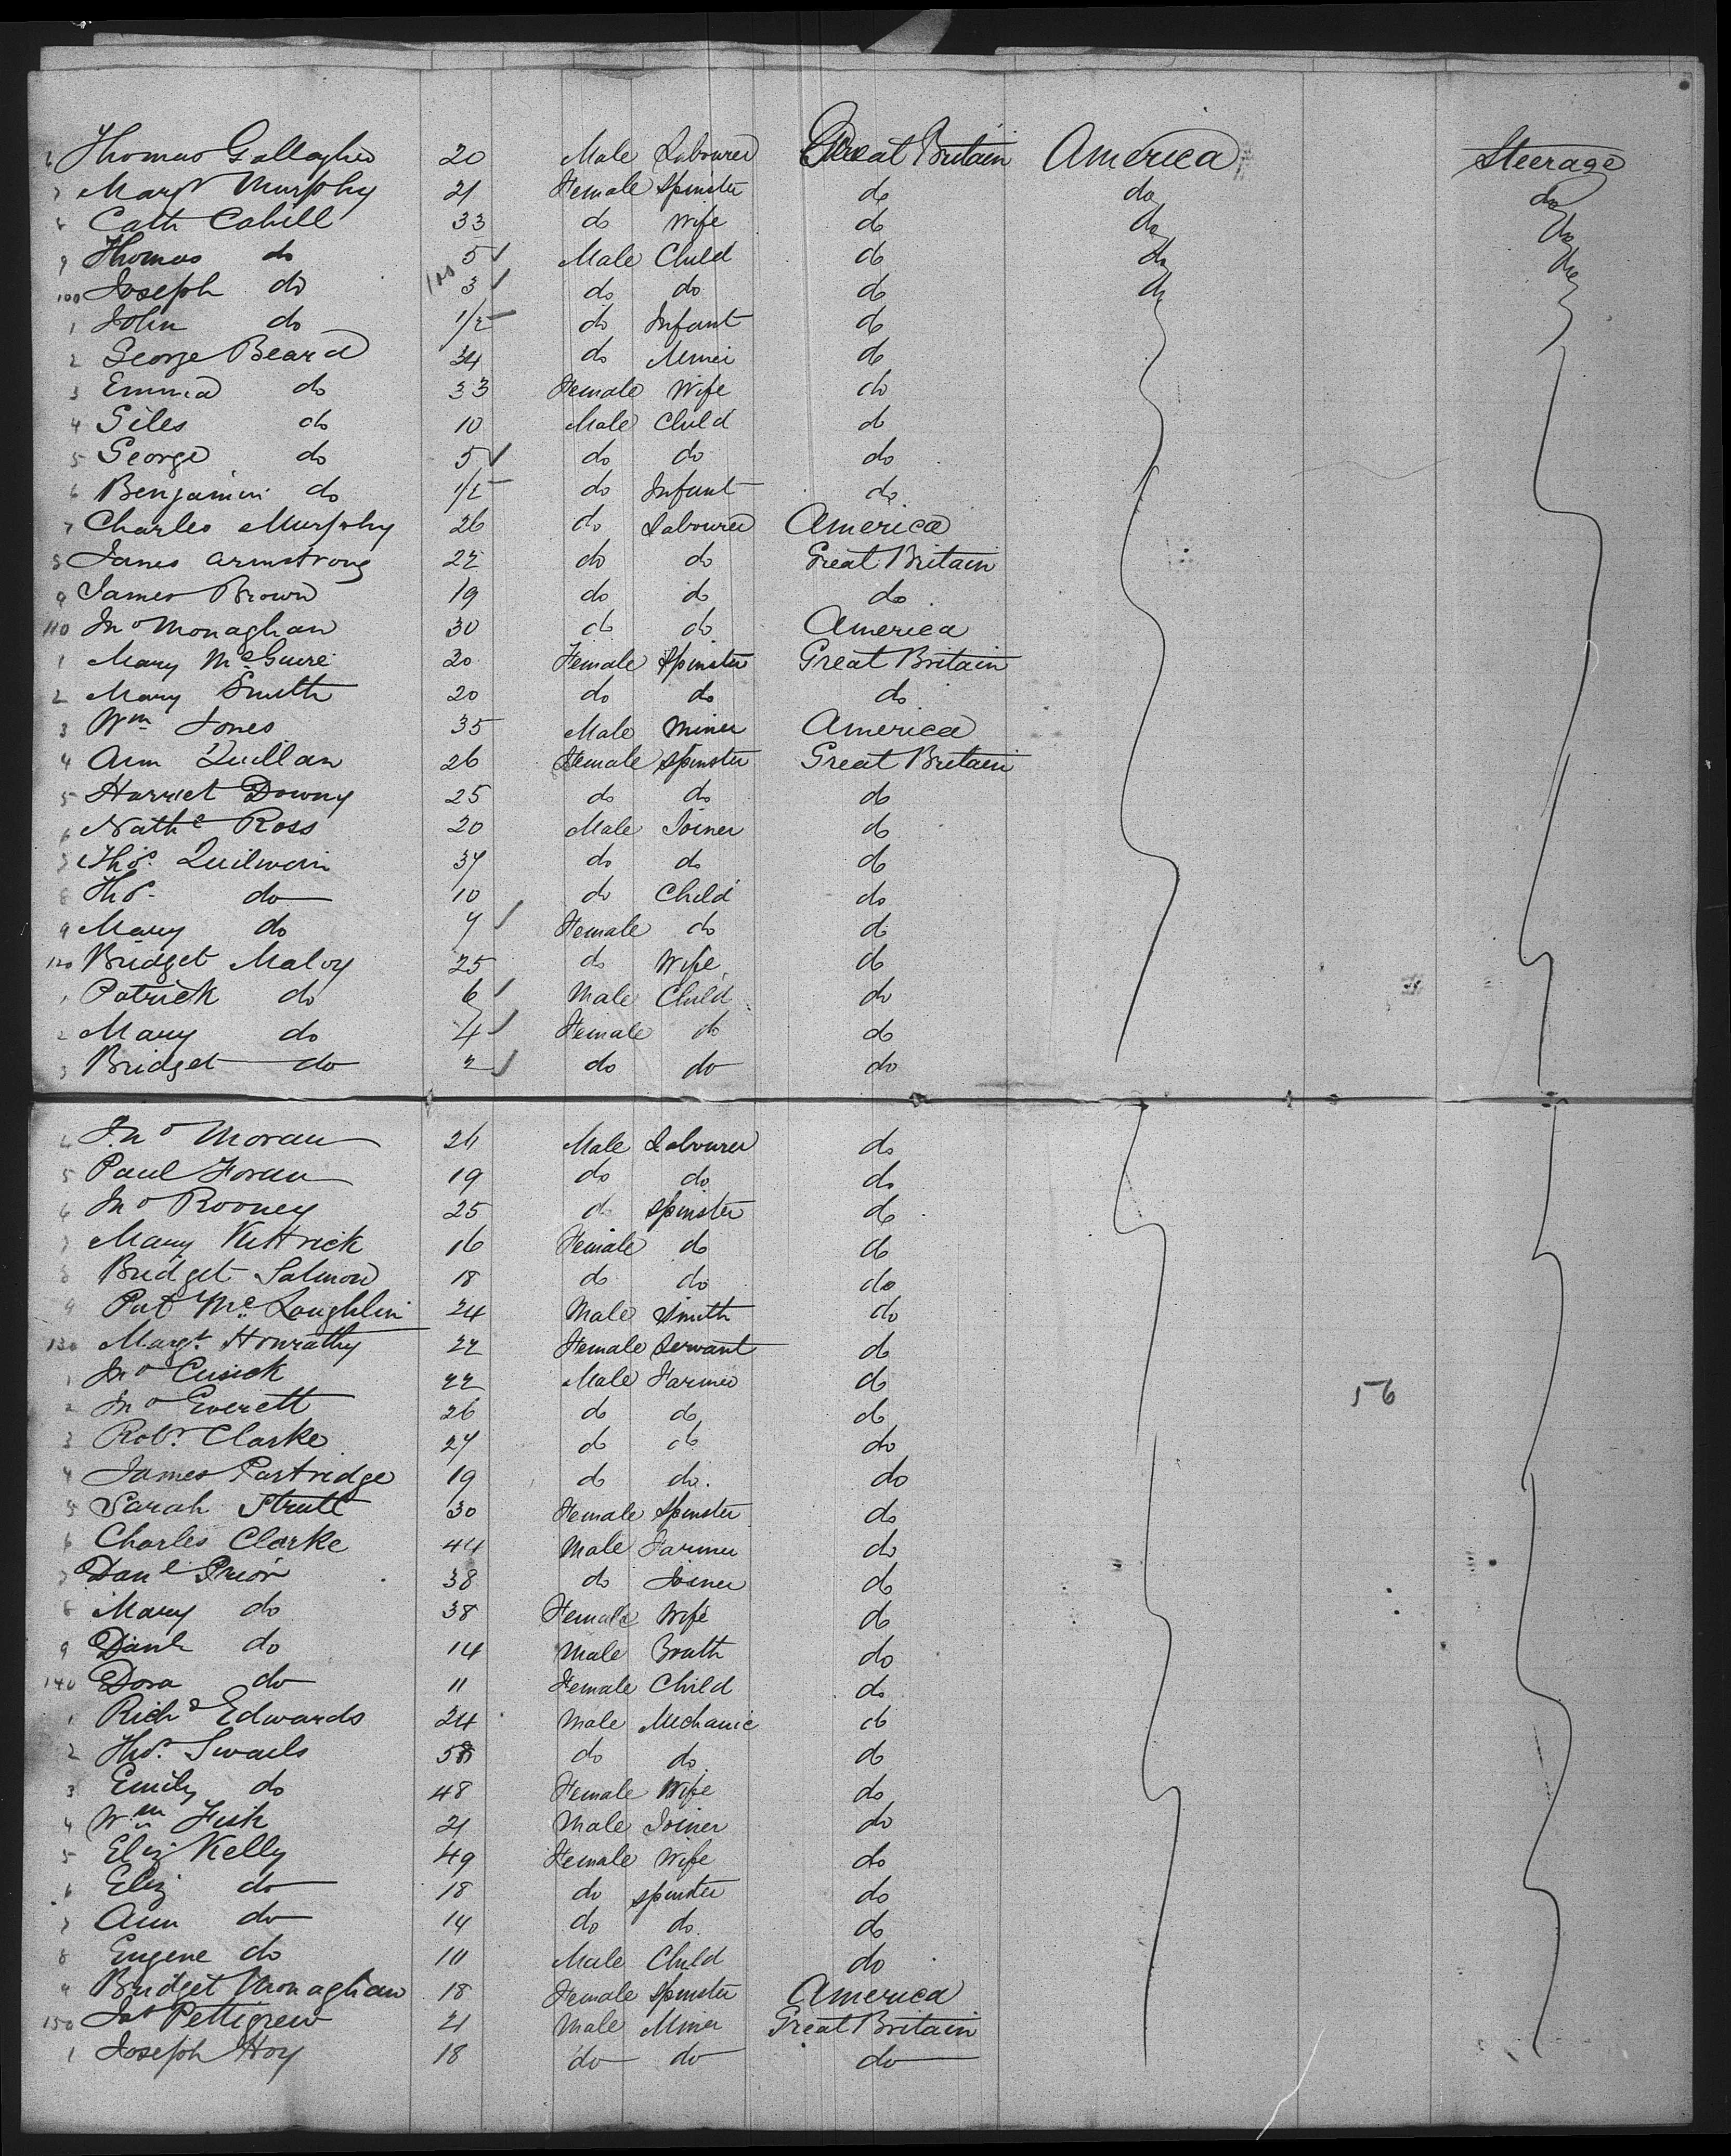 6 Thomas Gallagher 20 Male Labourer Great Britain America Steerage
7 Margt Murphy 21 Female Spinster do do do
8 Cath Cahill 33 do Wife do do do
9 Thomas do 5 Male Child do do do
100 Joseph do 3 do do do do
1 John do 1/2 do Infant do
2 George Beard 34 do Miner do
3 Emma do 33 Female Wife do
4 Giles do 10 Male Child do
5 George do 5 do do do
6 Benjamin do 1/2 do Infant do
7 Charles Murphy 26 do Labourer America
8 James Armstrong 22 do do Great Britain
9 James Brown 19 do do do
110 Jno Monaghan 30 do do America
1 Mary McGuire 20 Female Spinster Great Britain
2 Mary Smith 20 do do do
3 Wm Jones 35 Male Miner America
4 Ann Quillan 26 Female Spinster Great Britain
5 Harriet Downy 25 do do do
6 Nathl Ross 20 Male Joiner do
7 Thos. 37 do do do
8 Thos. do 10 do Child do
9 Mary do 7 Female do do
120 Bridget Maloy 25 do Wife do
1 Patrick do 6 Male Child do
2 Mary do 4 Female do do
3 Bridget do 2 do do do
4 Jno Moran 26 Male Labourer do
5 Paul Foran 19 do do do
6 Jno Rooney 25 do Spinster do
7 Mary Kittrick 16 Female do do
8 Bridget Salmon 18 do do do
9 Pat McLoughlin 24 Male Smith do
130 Margt. Honrathy 22 Female Servant do
1 Jno Cusick 22 Male Farmer do
2 Jno Everett 26 do do do
3 Robt. Clarke 27 do do do
56
4 James Partridge 19 do do. do
5 Sarah Strutt 30 Female Spinster do
6 Charles Clarke 44 Male Farmer do
7 Danl Prior 38 do Joiner do
8 Mary do 38 Female Wife do
9 Danl do 14 Male do
140 Dora do 11 Female Child do
1 Richd Edwards 24 Male Mechanic do
2 Thos. Swails 58 do do do
3 Emily do 48 Female Wife do
4 Wm Fisk 21 Male Joiner do
5 Eliz Kelly 49 Female Wife do
6 Eliz do 18 do Spinster do
7 Ann do 14 do do. do
8 Eugene do 10 Male Child do
9 Bridget Monaghan 18 Female Spinster America
150 Jas Pettigrew 21 Male Miner Great Britain
1 Joseph Hoy 18 do do do